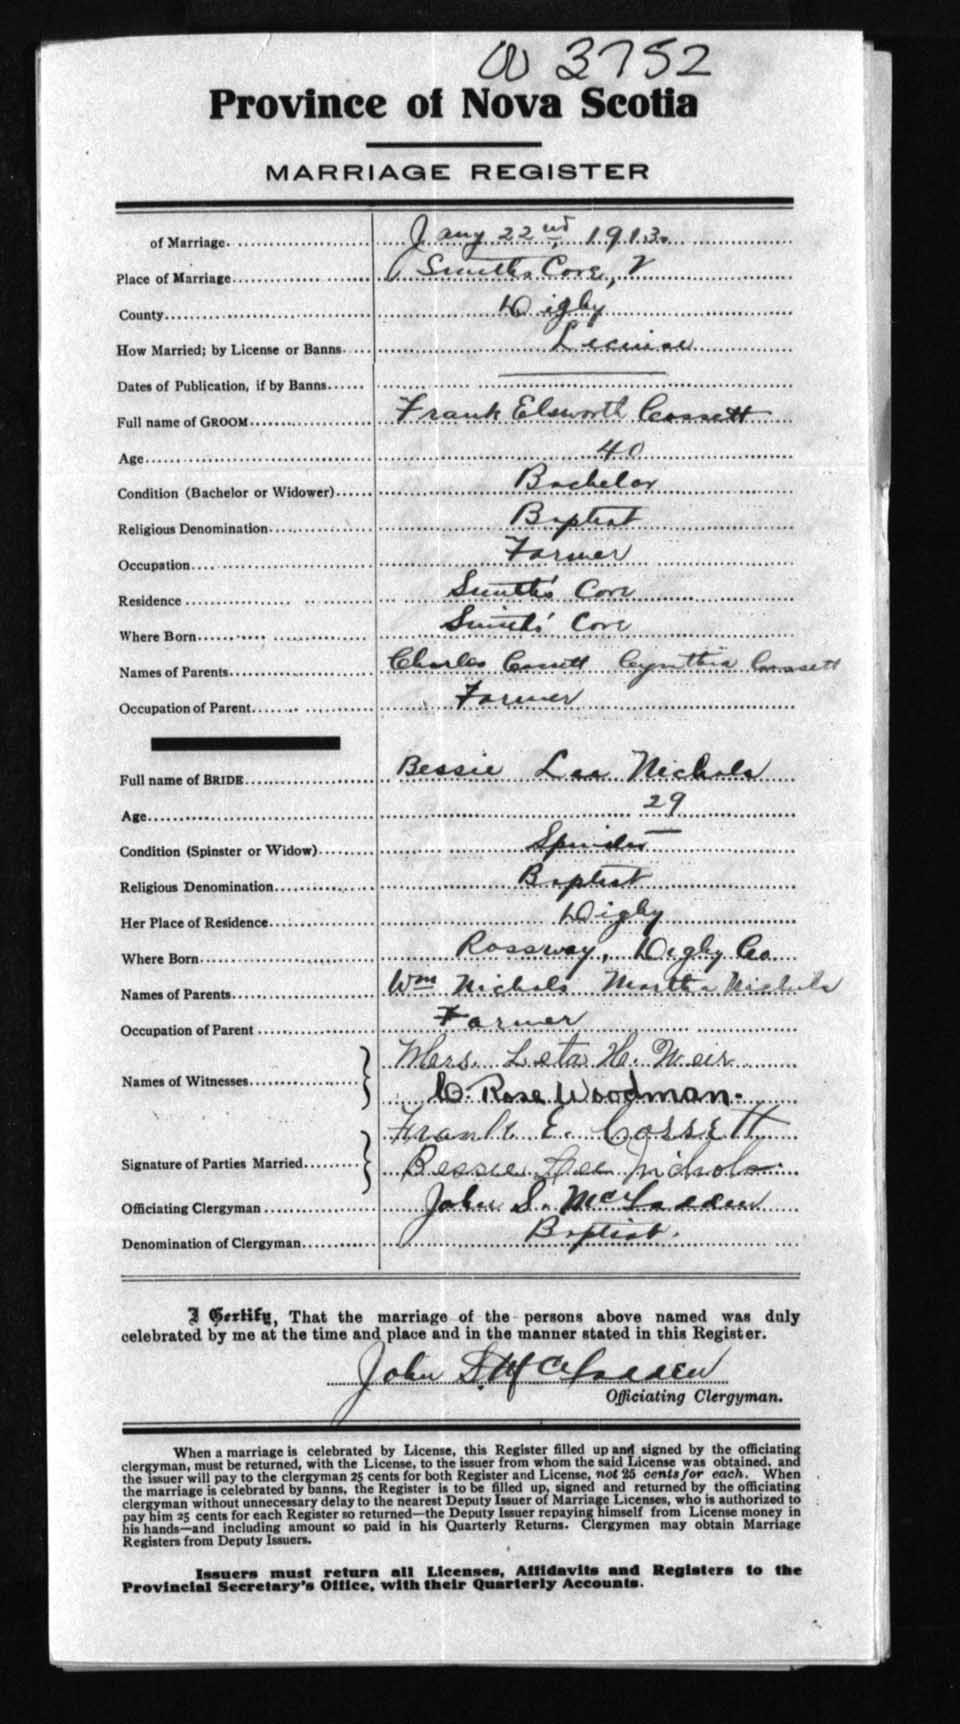 3752
Province of Nova Scotia
MARRIAGE REGISTER
of Marriage Jany 22nd, 1913.
Place of Marriage Smith's Cove,
County Digby
How Married; by License or Banns License
Dates of Publication, if by Banns
Full name of GROOM Frank Elsworth Cossett
Age 40
Condition (Bachelor or Widower) Bachelor
Religious Denomination Baptist
Occupation Farmer
Residence Smith's Cove
Where Born Smith's Cove
Names of Parents Charles Cossett Cynthia Cossett
Occupation of Parent Farmer
Full name of BRIDE Bessie Lea Nichols
Age 29
Condition (Spinster or Widow) Spinster
Religious Denomination Baptist
Her Place of Residence Digby
Where Born Rossway, Digby Co
Names of Parents Wm Nichols Martha Nichols
Occupation of Parent Farmer
Names of Witnesses Mrs. Leta H. Weir
C. Rose Woodman.
Frank E. Cossett
Signature of Parties Married Bessie Nichols
Officiating Clergyman John S. McFadden
Denomination of Clergyman Baptist.
I Certify, That the marriage of the persons above named was duly
celebrated by me at the time and place and in the manner stated in this Register.
John S. McFadden
Officiating Clergyman.
When a marriage is celebrated by License, this Register filled up and signed by the officiating
clergyman, must be returned, with the License, to the issuer from whom the said License was obtained, and
the issuer will pay to the clergyman 25 cents for both Register and License, not 25 cents for each. When
the marriage is celebrated by banns, the Register is to be filled up, signed and returned by the officiating
clergyman without unnecessary delay to the nearest Deputy Issuer of Marriage Licenses, who is authorized to
pay him 25 cents for each Register so returned—the Deputy Issuer repaying himself from License money in
his hands—and including amount so paid in his Quarterly Returns. Clergymen may obtain Marriage
Registers from Deputy Issuers.
Issuers must return all Licenses, Affidavits and Registers to the
Provincial Secretary's Office, with their Quarterly Accounts.